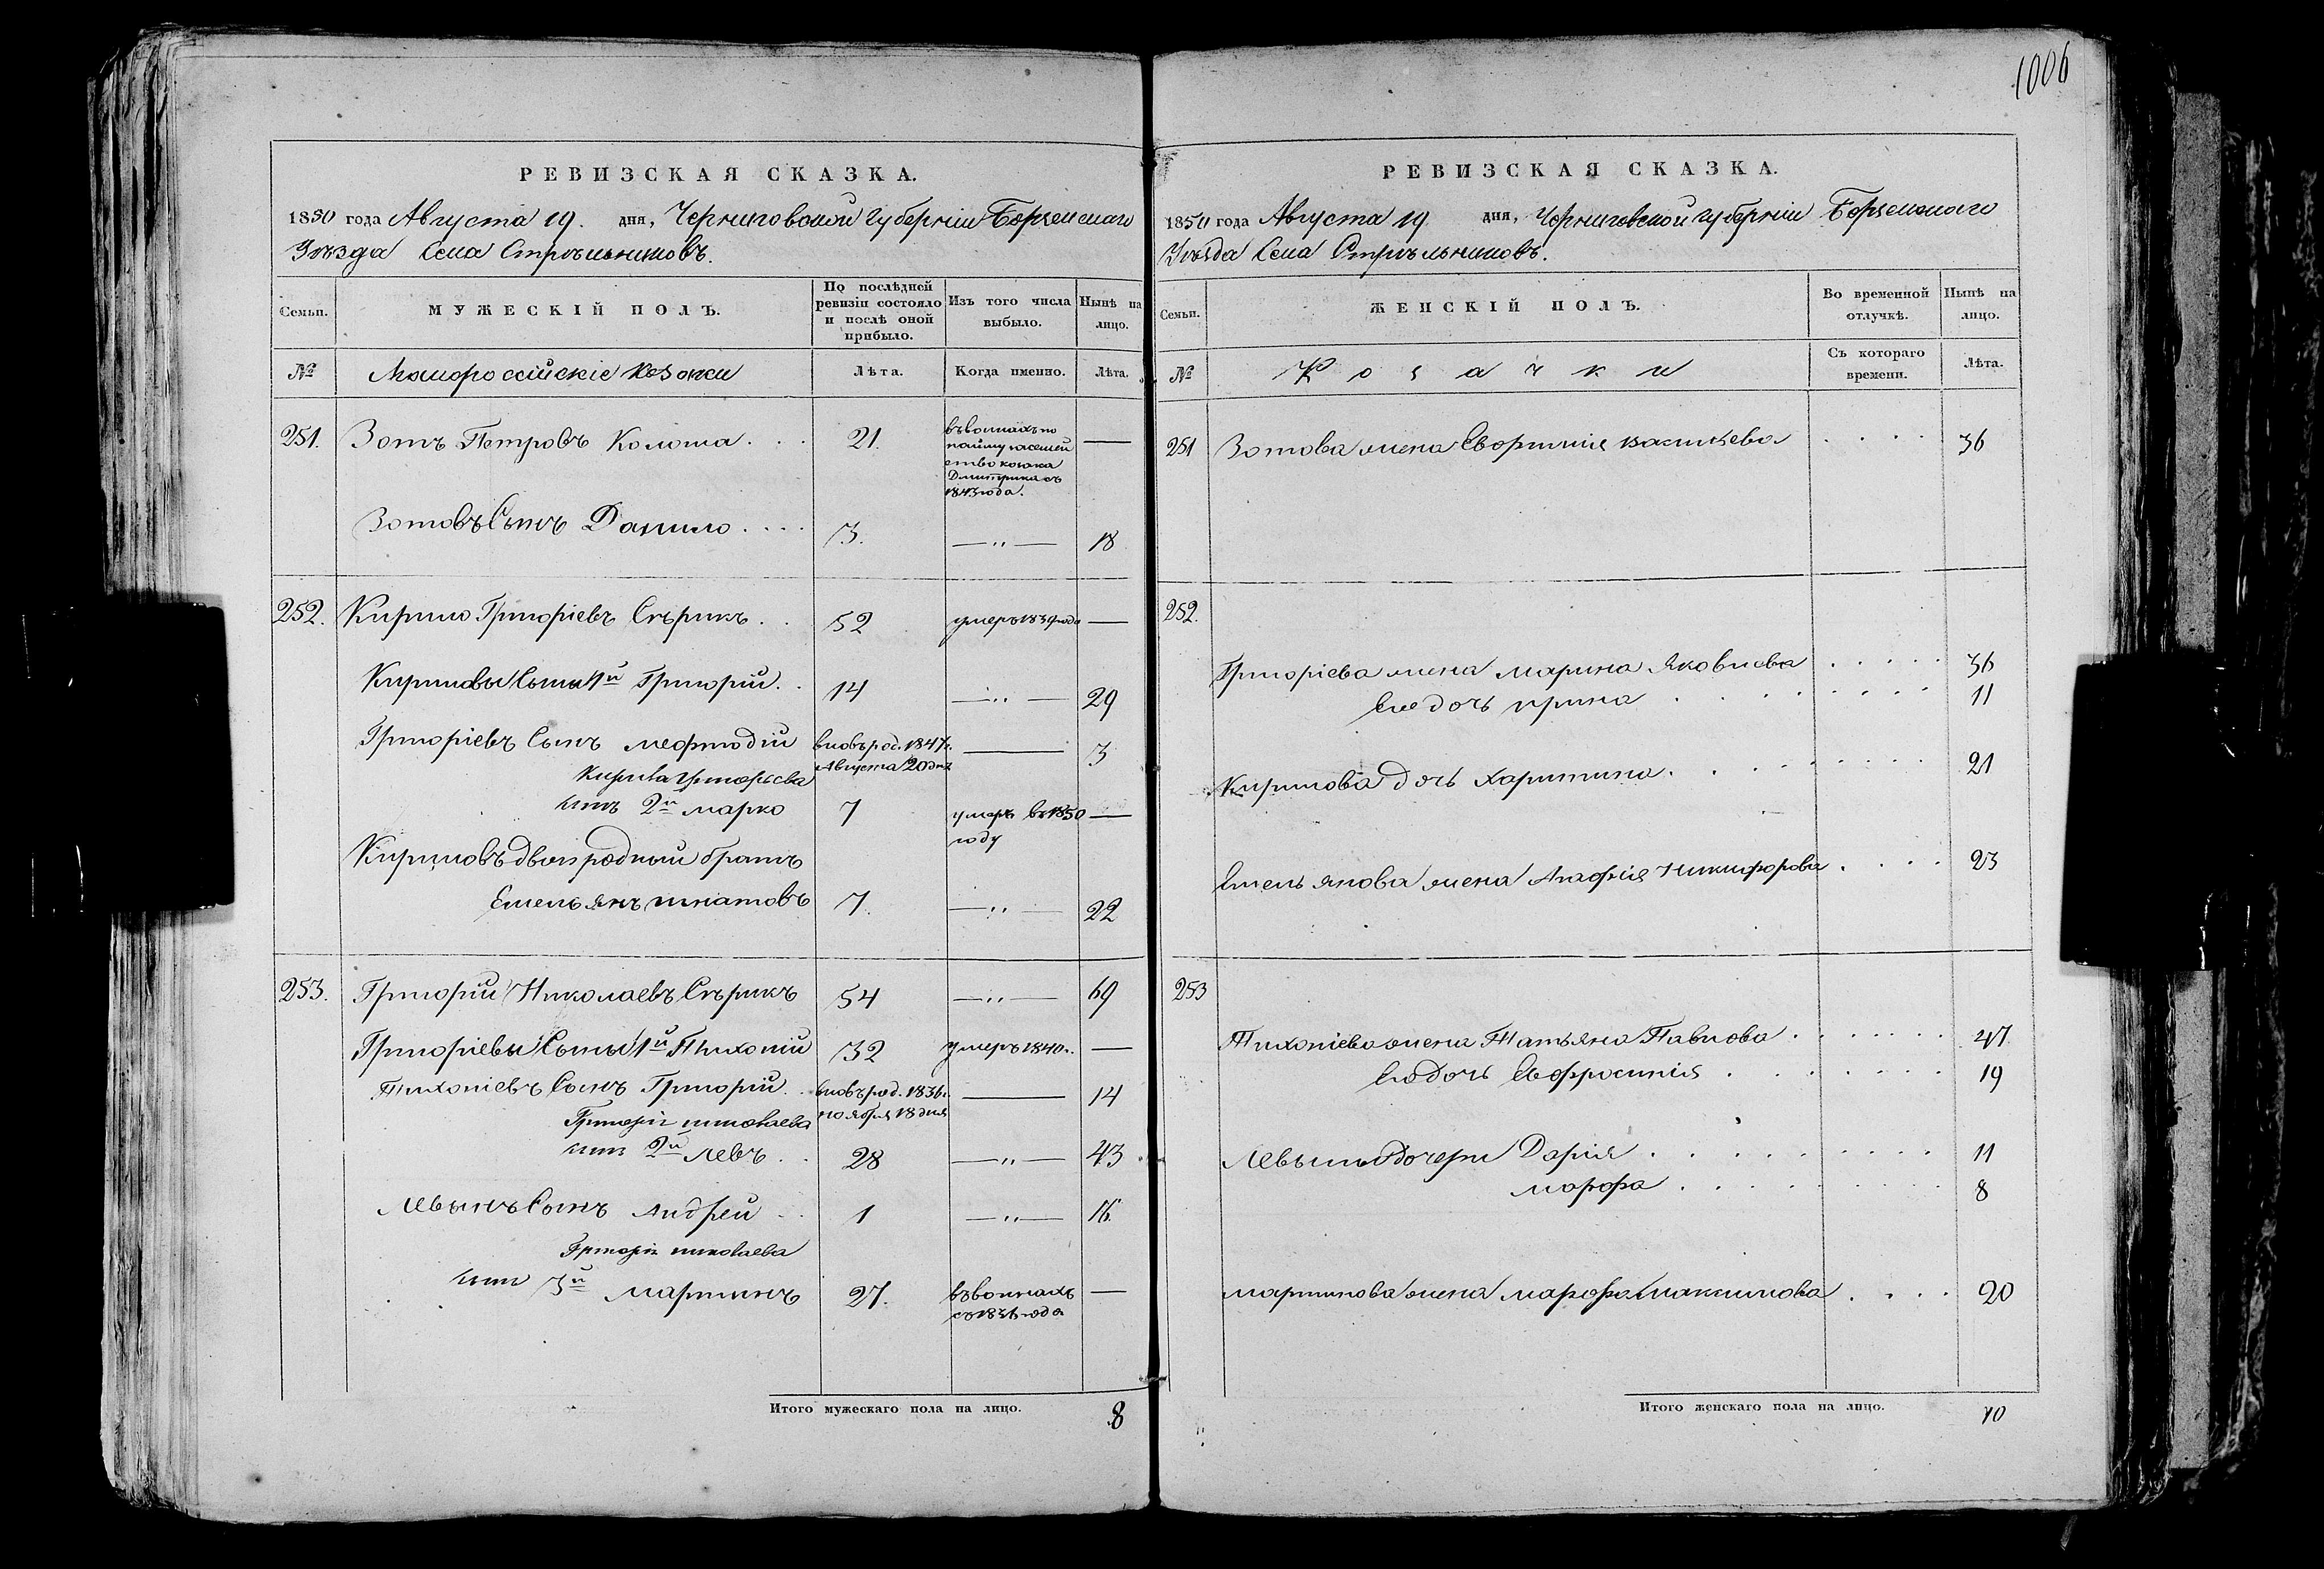 1006
РЕВИЗСКАЯ СКАЗКА.
1850 года Августа 19. дня, Черниговской губерніи Борзенскаго
Уѣзда Села Стрѣльниковъ.
Семьи.
МУЖЕСКІЙ ПОЛЪ.
По послѣдней ревизіи состояло и послѣ оной прибыло.
Изъ того числа выбыло.
Нынѣ на лицо.
№
Малороссійскіе козаки
Лѣта.
Когда именно.
Лѣта.
251. Зотъ Петровъ Колоша 21. въ воинахъ по найму
козака
Дмитрика съ
1843 года. —
Зотовъ Сынъ Данило 3. —"— 18
252. Кирило Григоріевъ Сѣрикъ 52 умеръ 1839 года —
Кириловы Сыны 1й Григорій 14 —"— 29
Григоріевъ Сынъ Мефтодій вновь род. 1847 г. — 3
Августа 20 дня
Кирила Григорьева
сынъ 2й Марко 7 умеръ въ 1850 —
году
Кириловъ двоюродный братъ
Емельянъ Игнатовъ 7. —"— 22
253. Григорій Николаевъ Сѣрикъ 54 —"— 69
Григоріевы Сыны 1й Тихоній 32 умеръ 1840 г. —
Тихоніевъ Сынъ Григорій вновь род. 1836 г. — 14
ноября 18 дня
Григорія Николаева
сынъ 2й Левъ 28 —"— 43
Левынъ Сынъ Андрей 1 —"— 16
Григорія Николаева
сынъ 3й Мартинъ 27. въ воинахъ —
съ 1836 года
Итого мужескаго пола на лицо. 8
РЕВИЗСКАЯ СКАЗКА.
1850 года Августа 19 дня, Черниговской губерніи Борзенскаго
Уѣзда Села Стрѣльниковъ.
Семьи.
ЖЕНСКІЙ ПОЛЪ.
Во временной отлучкѣ.
Нынѣ на лицо.
№
Козачки
Съ котораго времени.
Лѣта.
251 Зотова жена Евгинія Василіева 36
252.
Григоріева жена Марина Яковлева 36
Ея дочь Ирина 11
Кирилова дочь Харитина 21
Емельянова жена Агафія Никифорова 23
253
Тихоніева жена Татьяна Павлова 47
Ея дочь Евфросинія 19
Левыны дочери Дарія 11
Марфа 8
Мартинова жена Марфа Максимова 20
Итого женскаго пола на лицо. 10